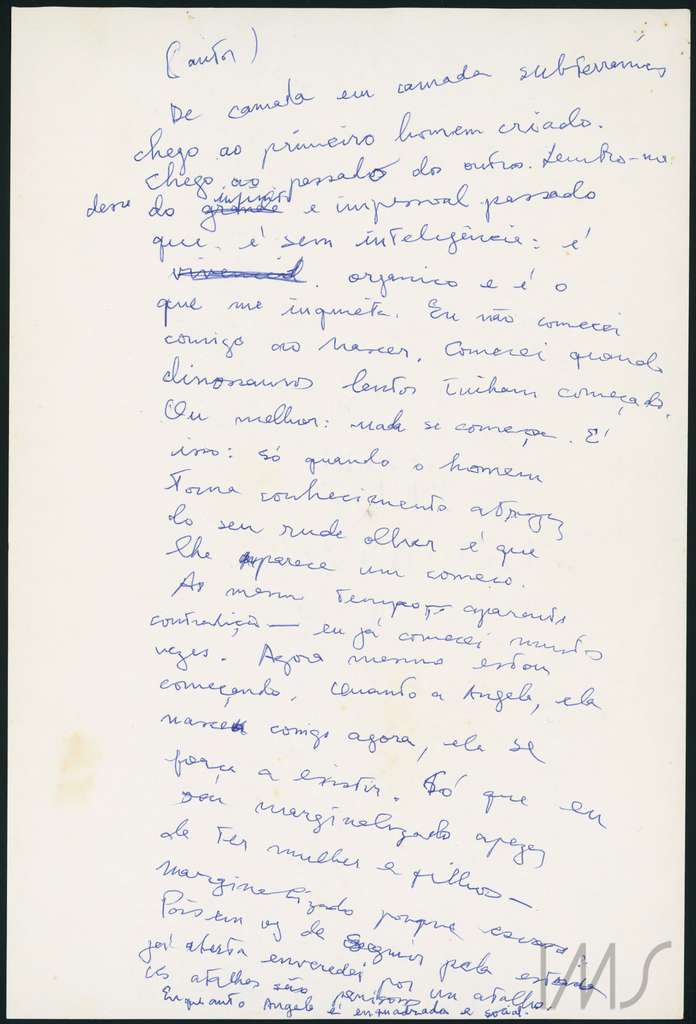 (autor)
De camada em camada subterrânea
chego ao primeiro homem criado.
Chego ao passado dos outros. Lembro-me
desse do grande infinito e impessoal passado
que é sem inteligência: é
vivencial. orgânico e é o
que me inquieta. Eu não comecei
comigo ao nascer. Comecei quando
dinossauros lentos tinham começado.
Ou melhor: nada se começa. É
isso: só quando o homem
toma conhecimento através
do seu rude olhar é que
lhe aparece um começo.
Ao mesmo tempo — aparente
contradição — eu já comecei muitas
vezes. Agora mesmo estou
começando. Quanto a Angela, ela
nasceu comigo agora, ela se
força a existir. Só que eu
sou marginalizado apezar
de ter mulher e filhos —
marginalizado porque escrevo
Pois em vez de seguir pela estrada
já aberta enveredei por um atalho.
Os atalhos são perigosos
Enquanto Angela é enquadrada e social.
IMS